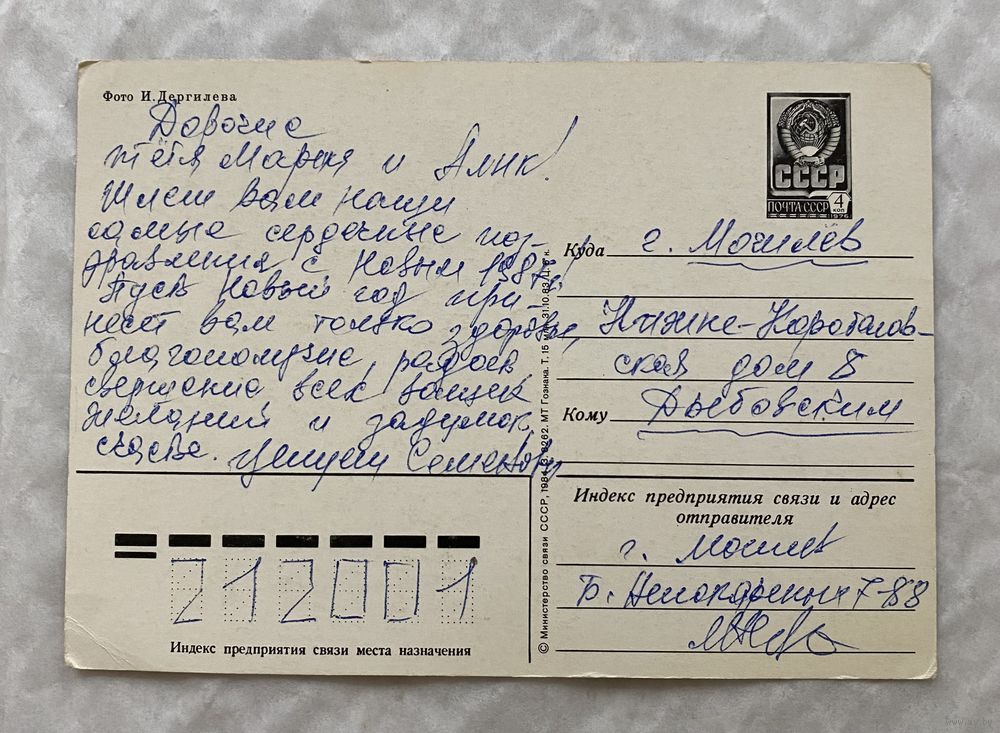 Фото И. Дергилева
Дорогие
тётя Мария и Алик!
Шлем вам наши
самые сердечные поз-
дравления с Новым 1987г.!
Пусть Новый год при-
несет вам только здоровье,
благополучие, радость
свершение всех ваших
желаний и задумок,
счастье. Целуем
СССР
ПОЧТА СССР 4 коп
1976
Куда г. Могилёв
дом 8
Кому Дыбовским
Индекс предприятия связи и адрес
отправителя
г. Могилев
Б. Непокоренных 7-88
212001
Индекс предприятия связи места назначения
© Министерство связи СССР, 1984. З. 8262. МТ Гознака. Т. 15 млн. 31.10.83. Ц. 5 к.